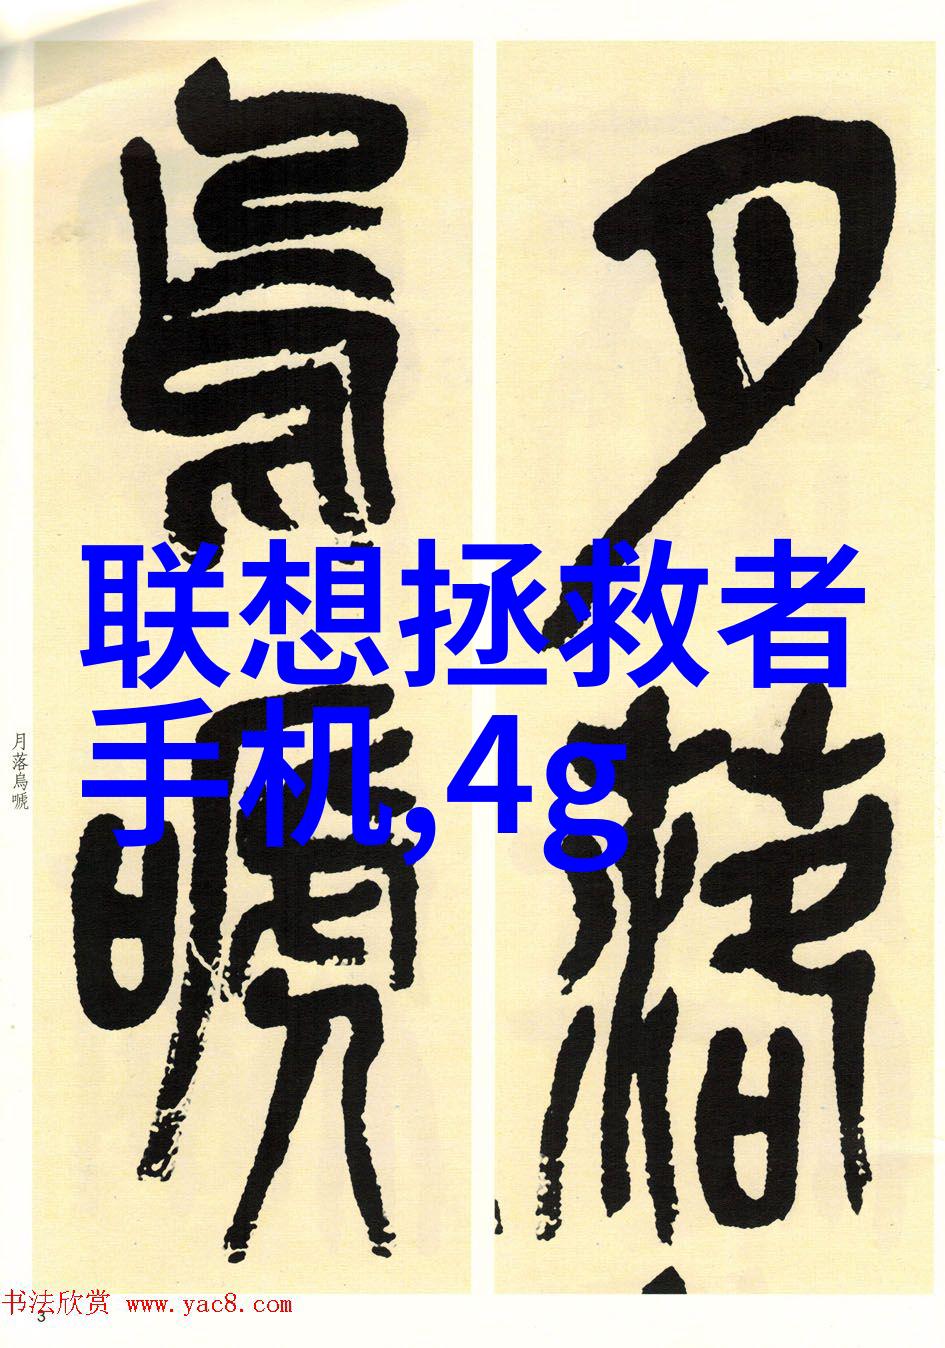 月落
烏嗁
联想拯救者
手机,4g
月落烏嗁
书法欣赏 www.yac8.com
3